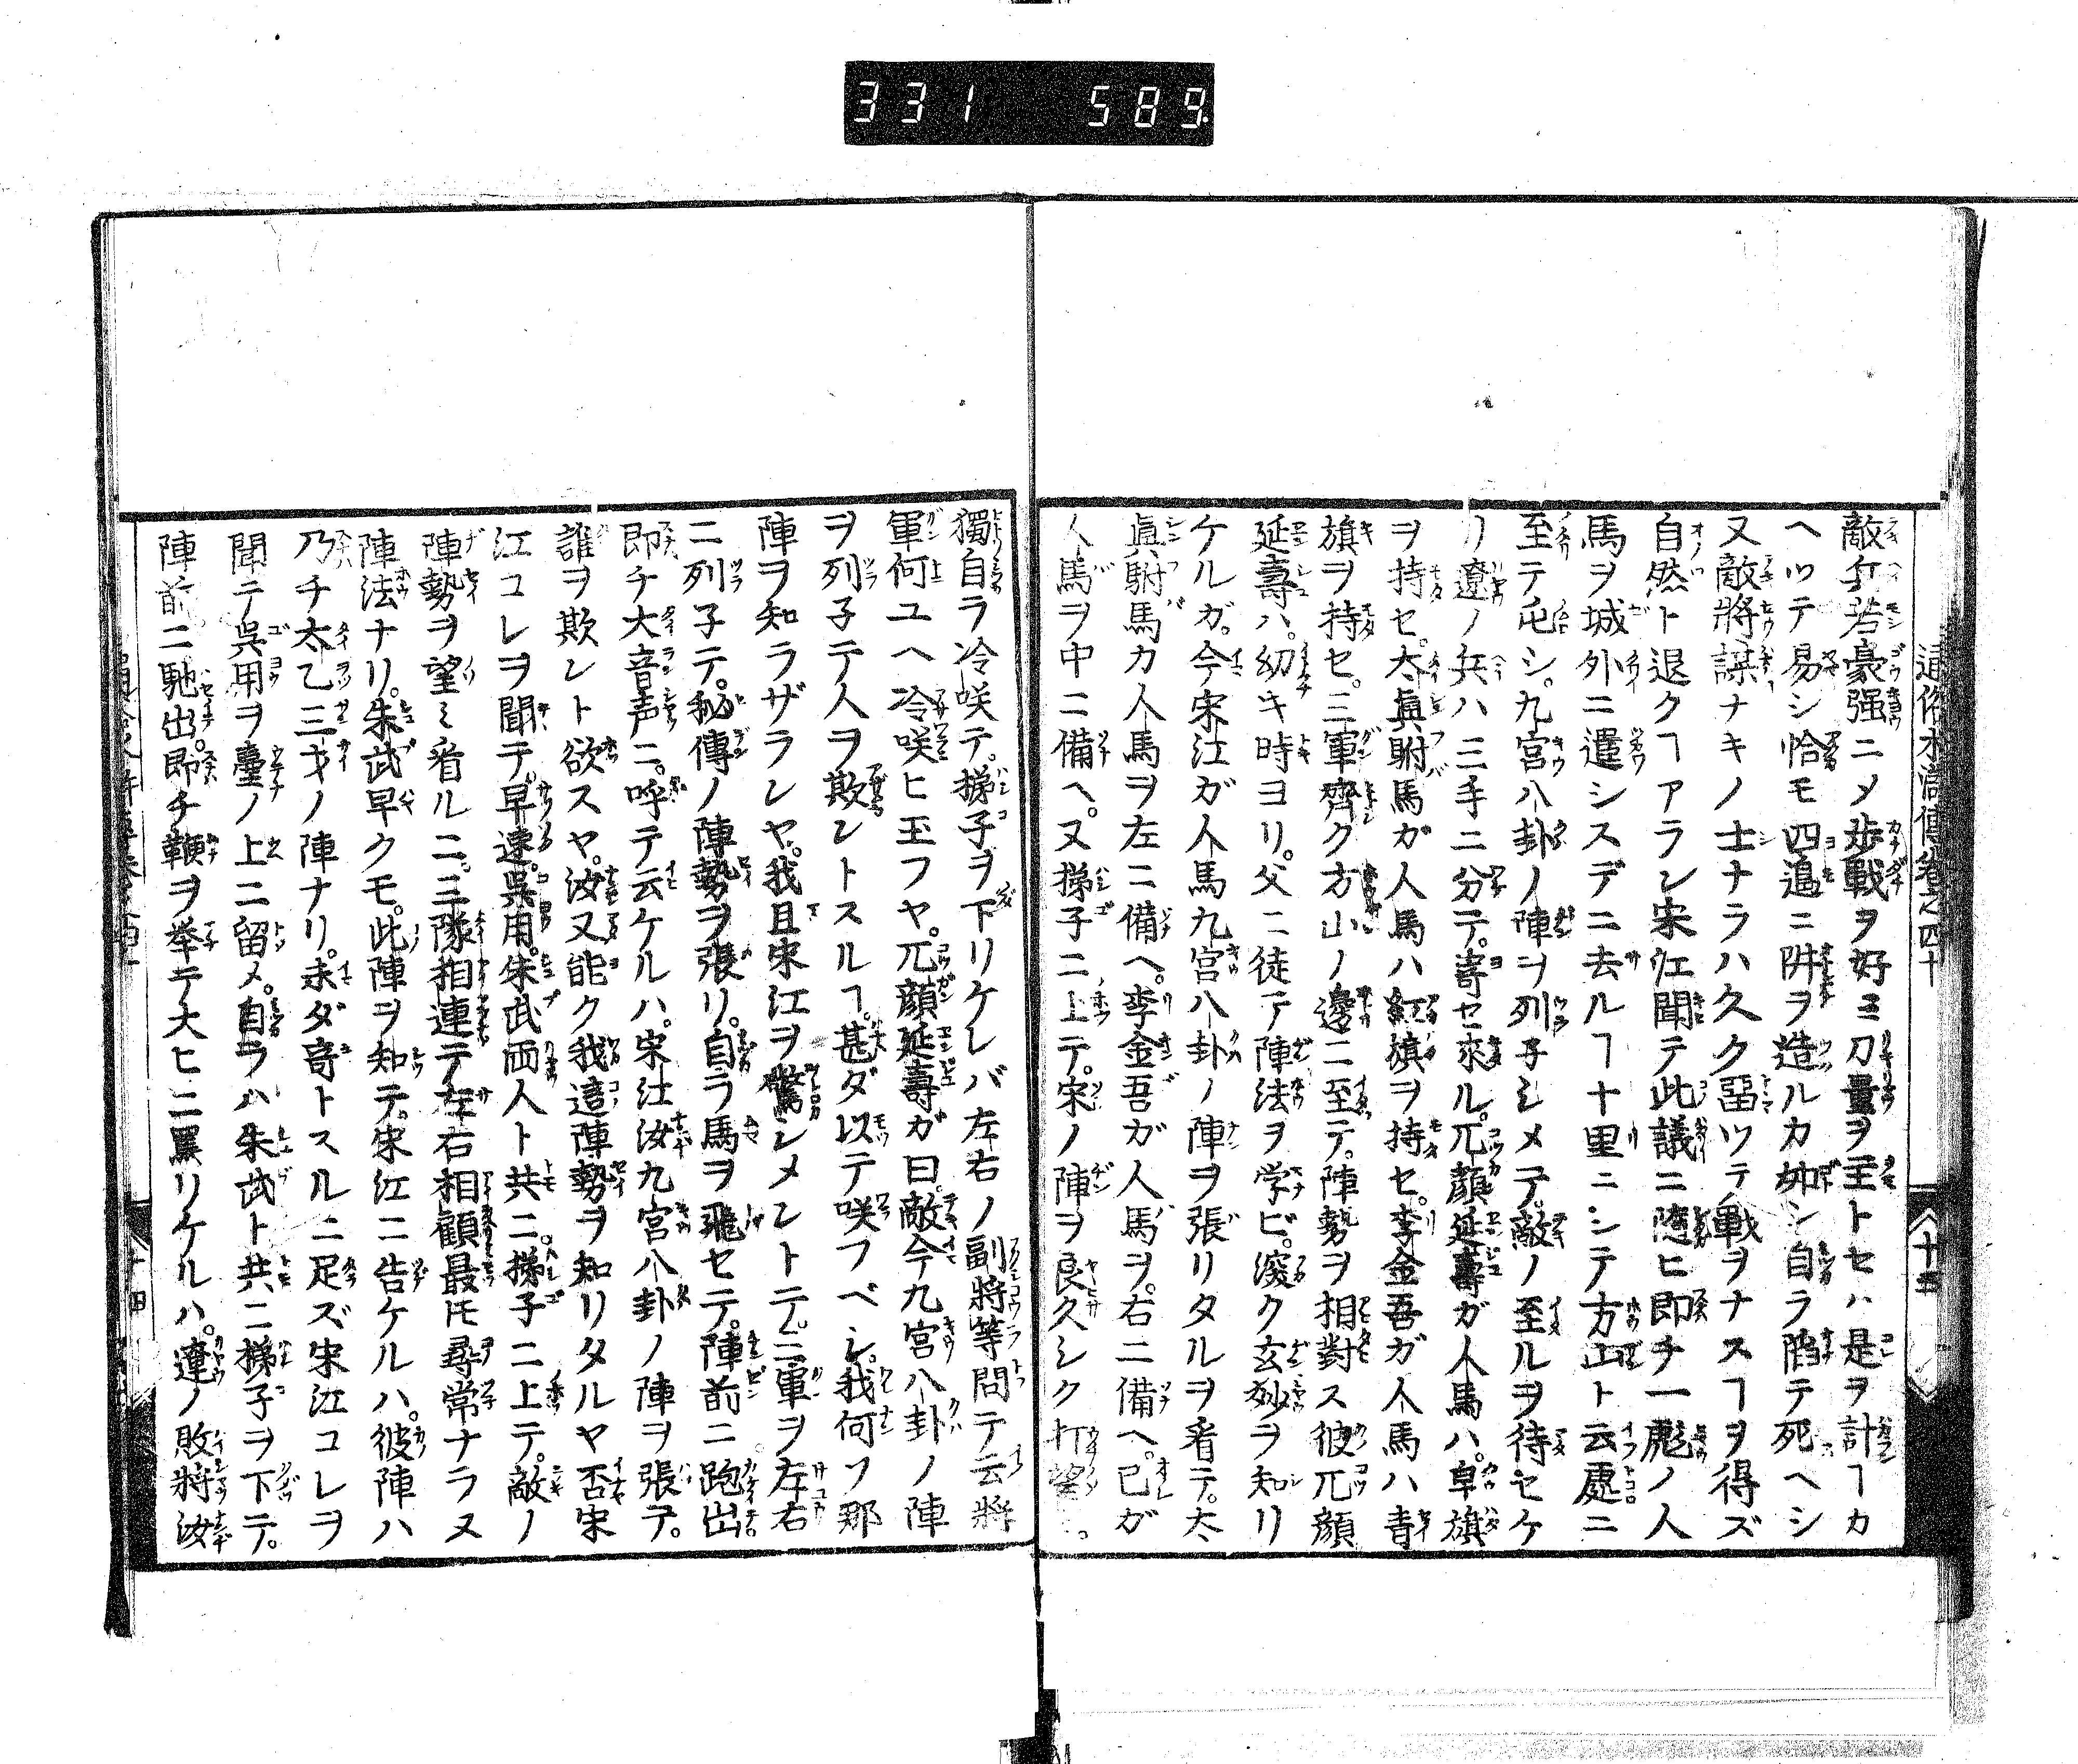 331 589
通俗水滸傳卷之四十
敵兵若豪强ニメ歩戰ヲ好ミ刀量ヲ主トセハ是ヲ計ヿカ
ヘツテ易シ恰モ四邉ニ阱ヲ造ルカ如シ自ラ陷テ死ヘシ
又敵將謀ナキノ士ナラハ久ク畱ツテ戰ヲナスヿヲ得ズ
自然ト退クヿアラン宋江聞テ此議ニ隨ヒ即チ一彪ノ人
馬ヲ城外ニ遣シスデニ去ルヿ十里ニシテ方山ト云處ニ
至テ屯シ。九宮八卦ノ陣ヲ列子シメテ。敵ノ至ルヲ待セケ
リ遼ノ兵ハ三手ニ分テ。寄セ來ル。兀顔延壽ガ人馬ハ。皁旗
ヲ持セ。太眞駙馬ガ人馬ハ紅旗ヲ持セ。李金吾ガ人馬ハ青
旗ヲ持セ。三軍齊ク方山ノ邊ニ至テ。陣勢ヲ相對ス彼兀顔
延壽ハ。幼キ時ヨリ。父ニ從テ陣法ヲ学ビ。深ク玄妙ヲ知リ
ケルガ。今宋江ガ人馬九宮八卦ノ陣ヲ張リタルヲ看テ。太
眞駙馬カ人馬ヲ左ニ備ヘ。李金吾ガ人馬ヲ。右ニ備ヘ。已ガ
人馬ヲ中ニ備ヘ。又梯子ニ上テ。宋ノ陣ヲ良久シク打望
獨自ラ冷咲テ。梯子ヲ下リケレバ左右ノ副將等問テ云將
軍何ユヘ冷咲ヒ玉フヤ。兀顔延壽ガ曰。敵今九宮八卦ノ陣
ヲ列子テ人ヲ欺ントスルヿ。甚ダ以テ咲フベシ。我何ソ那
陣ヲ知ラザランヤ。我且宋江ヲ驚シメントテ。三軍ヲ左右
ニ列子テ。秘傳ノ陣勢ヲ張リ。自ラ馬ヲ飛セテ。陣前ニ跑出
即チ大音声ニ。呼テ云ケルハ。宋江汝九宮八卦ノ陣ヲ張テ。
誰ヲ欺レト欲スヤ。汝又能ク我這陣勢ヲ知リタルヤ否宋
江コレヲ聞テ。早速。呉用。朱武両人ト共ニ。梯子ニ上テ。敵ノ
陣勢ヲ望ミ看ルニ。三隊相連テ左右相顧最モ尋常ナラヌ
陣法ナリ。朱武早クモ。此陣ヲ知テ。宋江ニ告ケルハ。彼陣ハ
乃チ太乙三才ノ陣ナリ。未ダ奇トスルニ足ズ宋江コレヲ
聞テ呉用ヲ臺ノ上ニ留メ。自ラハ朱武ト共ニ梯子ヲ下テ。
陣前ニ馳出。即チ鞭ヲ挙テ大ヒニ罵リケルハ。遼ノ敗將汝